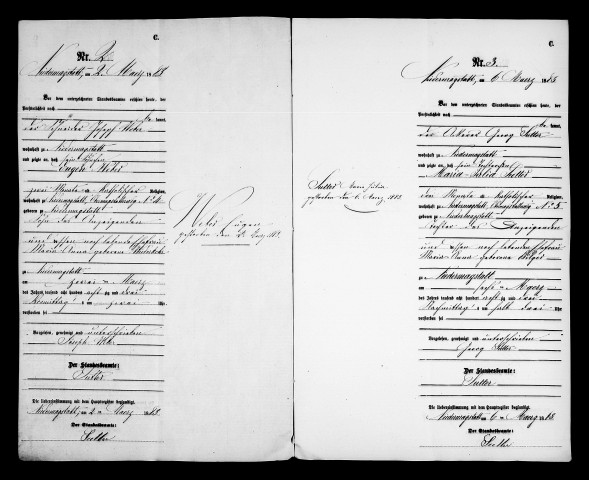 C.
Nr. 2
Niedermagstatt, 2. Maerz 1883
Vor dem unterzeichneten Standesbeamten erschien heute, der
Persönlichkeit nach
kannt,
der Joseph Weber
wohnhaft zu Niedermagstatt
und zeigte an, daß sein
Eugen Weber
zwei Monate a. katholischer Religion,
wohnhaft zu Niedermagstatt, N° 4
geboren zu Niedermagstatt
Sohn des Anzeigenden
und seiner noch lebenden Ehefrau
Maria Anna geborene
zu Niedermagstatt
am zwei ten Maerz
des Jahres tausend acht hundert achtzig und drei
Vormittags um zwei Uhr
verstorben sei
Vorgelesen, genehmigt und unterschrieben
Joseph Weber
Der Standesbeamte:
Sutter
Die Uebereinstimmung mit dem Hauptregister beglaubigt.
Niedermagstatt, am 2ten Maerz 1883
Der Standesbeamte:
Sutter
Weber Eugen
gestorben den 2. Maerz 1883
Sutter Maria
gestorben den 6. Maerz 1883
C.
Nr. 3.
Niedermagstatt, am 6 Maerz 1883
Vor dem unterzeichneten Standesbeamten erschien heute, der
Persönlichkeit nach
kannt,
der Ackerer Georg Sutter
wohnhaft zu Niedermagstatt
und zeigte an, daß sein
Maria Sutter
Monate a. katholischer Religion,
wohnhaft zu Niedermagstatt, N° 3
geboren zu Niedermagstatt
Tochter des Anzeigenden
und seiner noch lebenden Ehefrau
Maria Anna geborene
zu Niedermagstatt
am sechs ten Maerz
des Jahres tausend acht hundert achtzig und drei
Nachmittags um halb zwei Uhr
verstorben sei
Vorgelesen, genehmigt und unterschrieben
Georg Sutter
Der Standesbeamte:
Sutter
Die Uebereinstimmung mit dem Hauptregister beglaubigt.
Niedermagstatt, am 6ten Maerz 1883
Der Standesbeamte:
Sutter